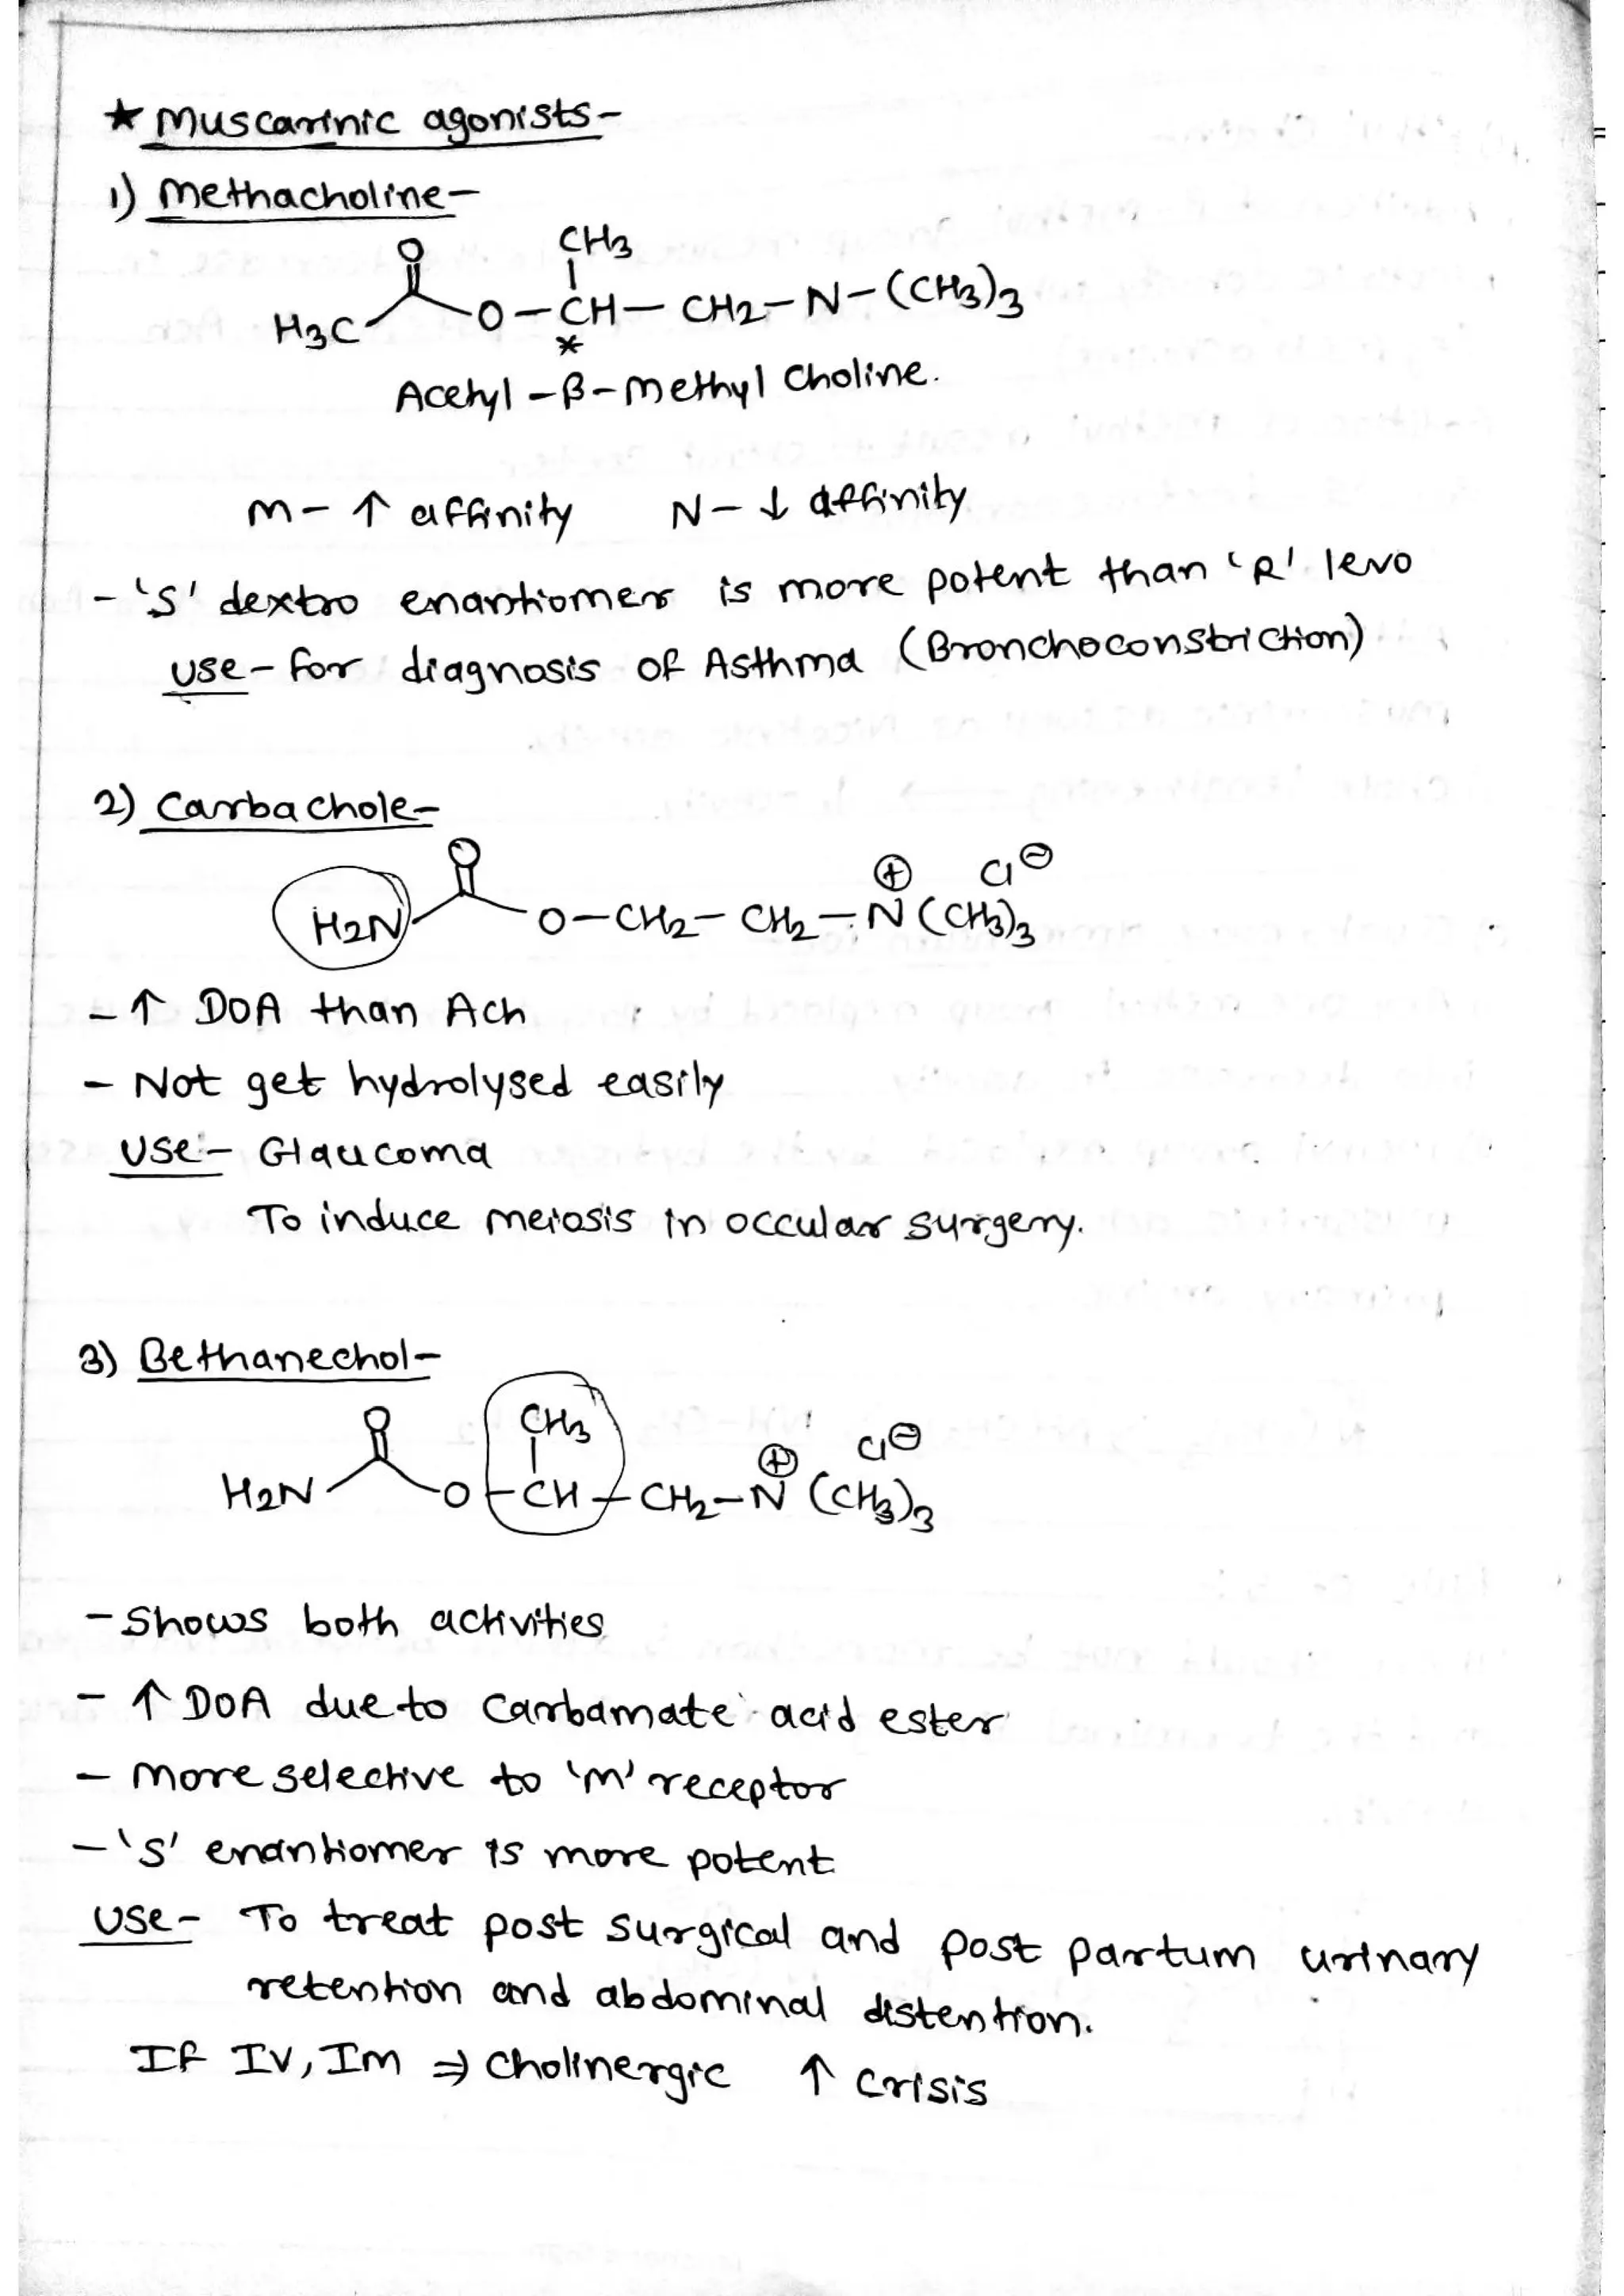 ★ Muscarinic agonists-
1) Methacholine-
O CH3
H3C O-CH-CH2-N-(CH3)3
*
Acetyl-β-methyl choline.
M-↑ affinity N-↓ affinity
-'S' dextro enantiomer is more potent than 'R' levo
use- for diagnosis of Asthma (Bronchoconstriction)
2) Carbachole-
O ⊕ Cl⊖
H2N O-CH2-CH2-N(CH3)3
-↑ DOA than Ach
- Not get hydrolysed easily
Use:- Glaucoma
To induce meiosis in occular surgery.
3) Bethanechol-
O CH3 ⊕ Cl⊖
H2N O-CH-CH2-N(CH3)3
-Shows both activities
-↑ DOA due to carbamate acid ester
- More selective to 'M' receptor
-'S' enantiomer is more potent
Use- To treat post surgical and post partum urinary
retention and abdominal distention.
If IV, Im ⇒ cholinergic ↑ crisis